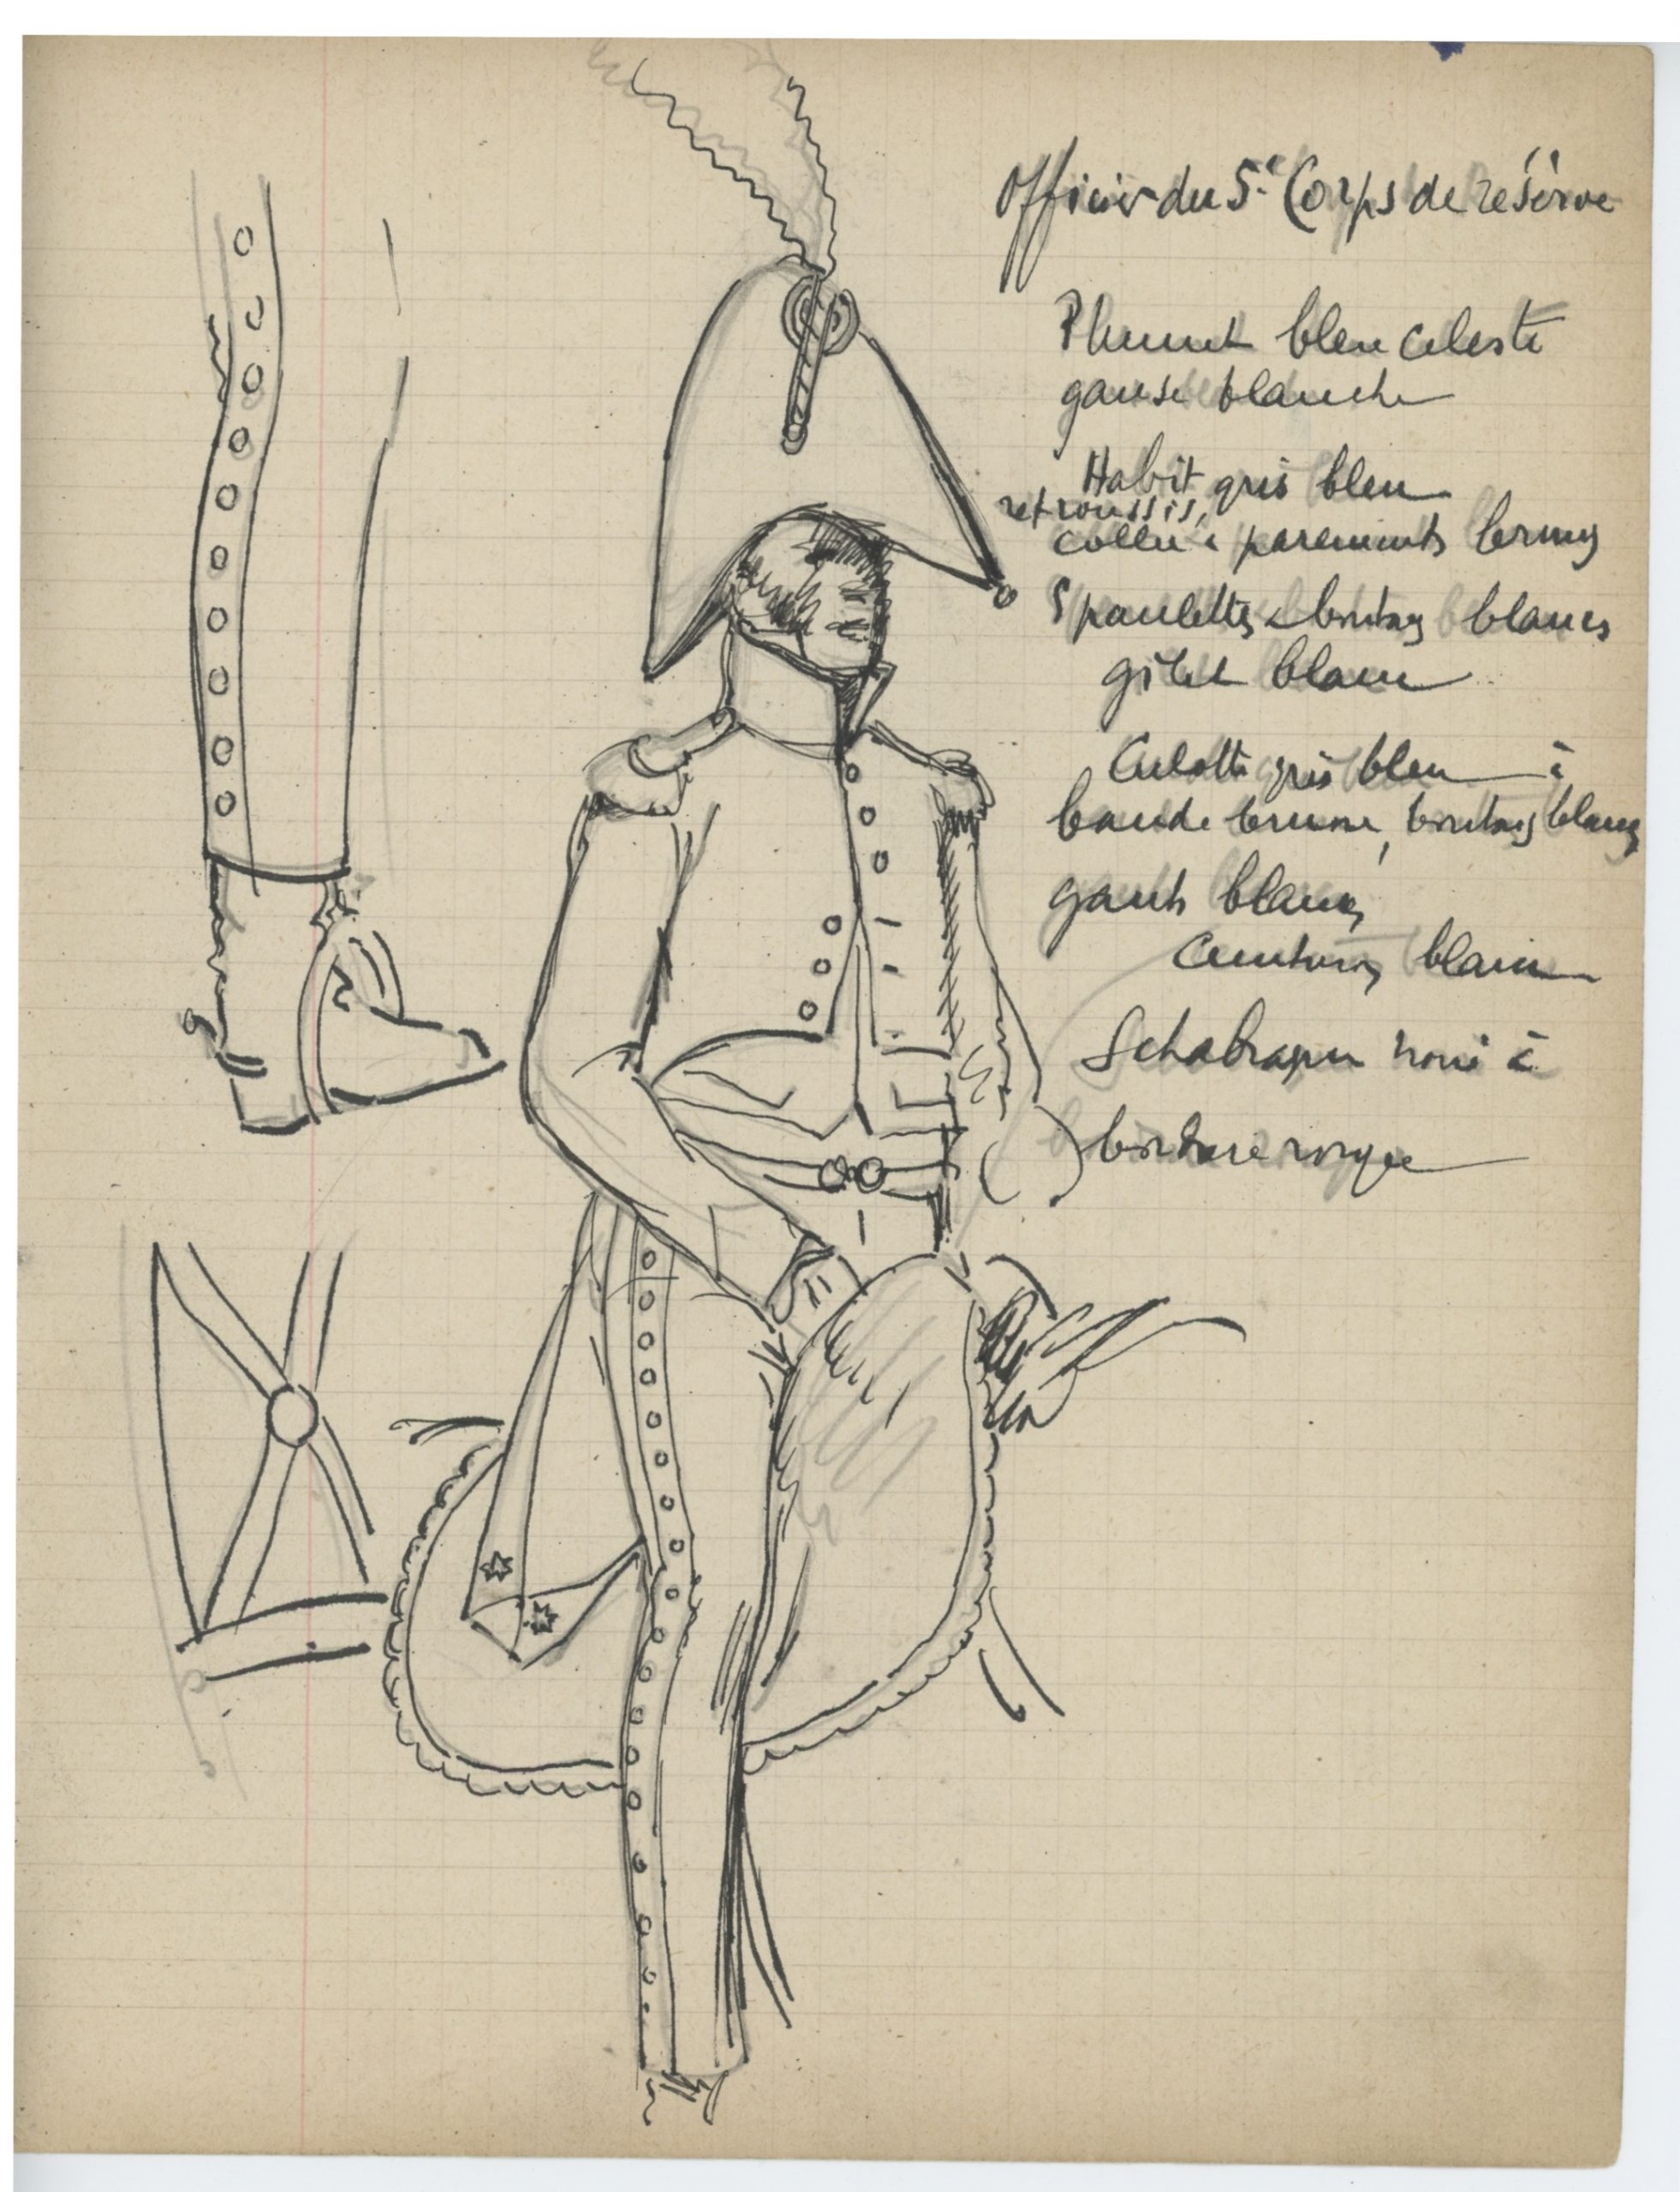 Officier du 5e Corps de réserve
Plumet bleu celeste
ganse blanche
Habit gris bleu
retroussis,
collet & parements bruns
Epaulettes & boutons blancs
gilet blanc
Culotte gris bleu à
bande brune, boutons blancs
gants blancs
Ceinturon blanc
Schabraque noire à
bordure rouge